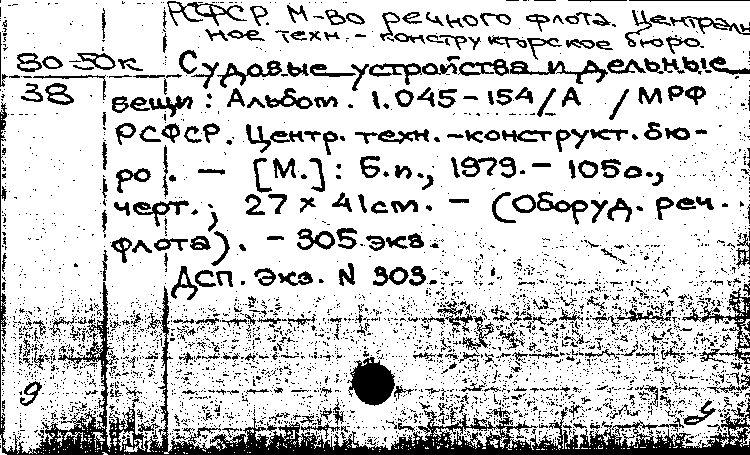 РСФСР. М-во речного флота. Централь-
ное техн.-конструкторское бюро.
80-50к Судовые устройства и дельные
38 вещи: Альбом. 1.045-154/А /МРФ
РСФСР. Центр. техн.-конструкт. бю-
ро. — [М.]: Б.и., 1979. — 105с.,
черт.; 27 × 41см. — (Оборуд. реч.
флота). - 305 экз.
ДСП. Экз. N 303.
9